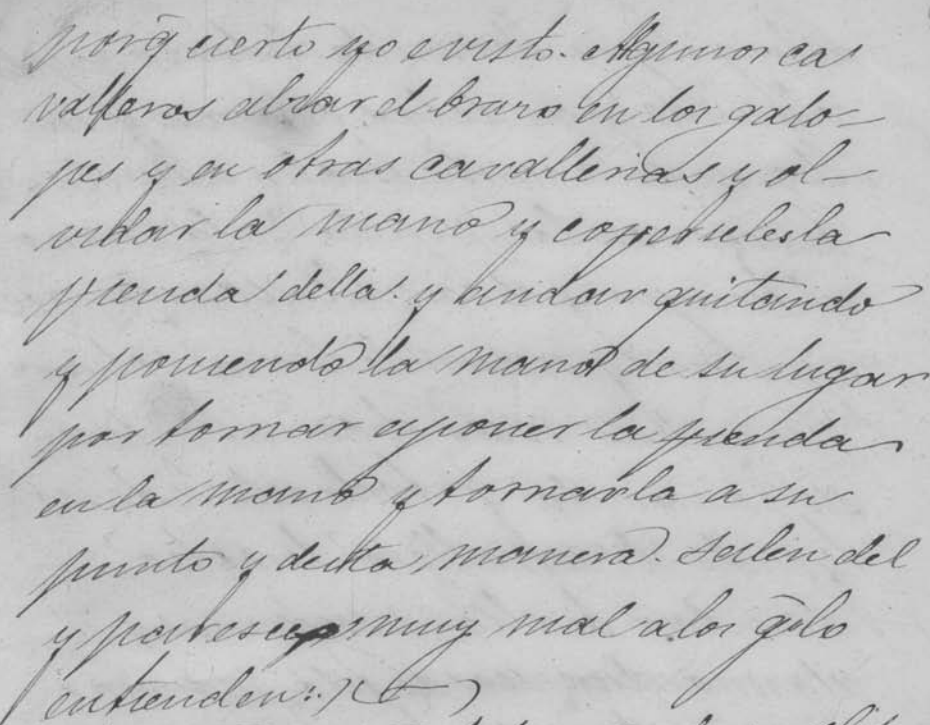 porq̄ cierto yo e visto. Algunos ca
valleros alzar el brazo en los galo-
pes y en otras cavallerias y ol-
vidar la mano y coxerseles la
rienda della. y andar quitando
y poniendo la mano de su lugar
por tornar a poner la rienda
en la mano y tornarla a su
punto y desta manera. salen del
y paresce muy mal a los q̄ lo
entienden: